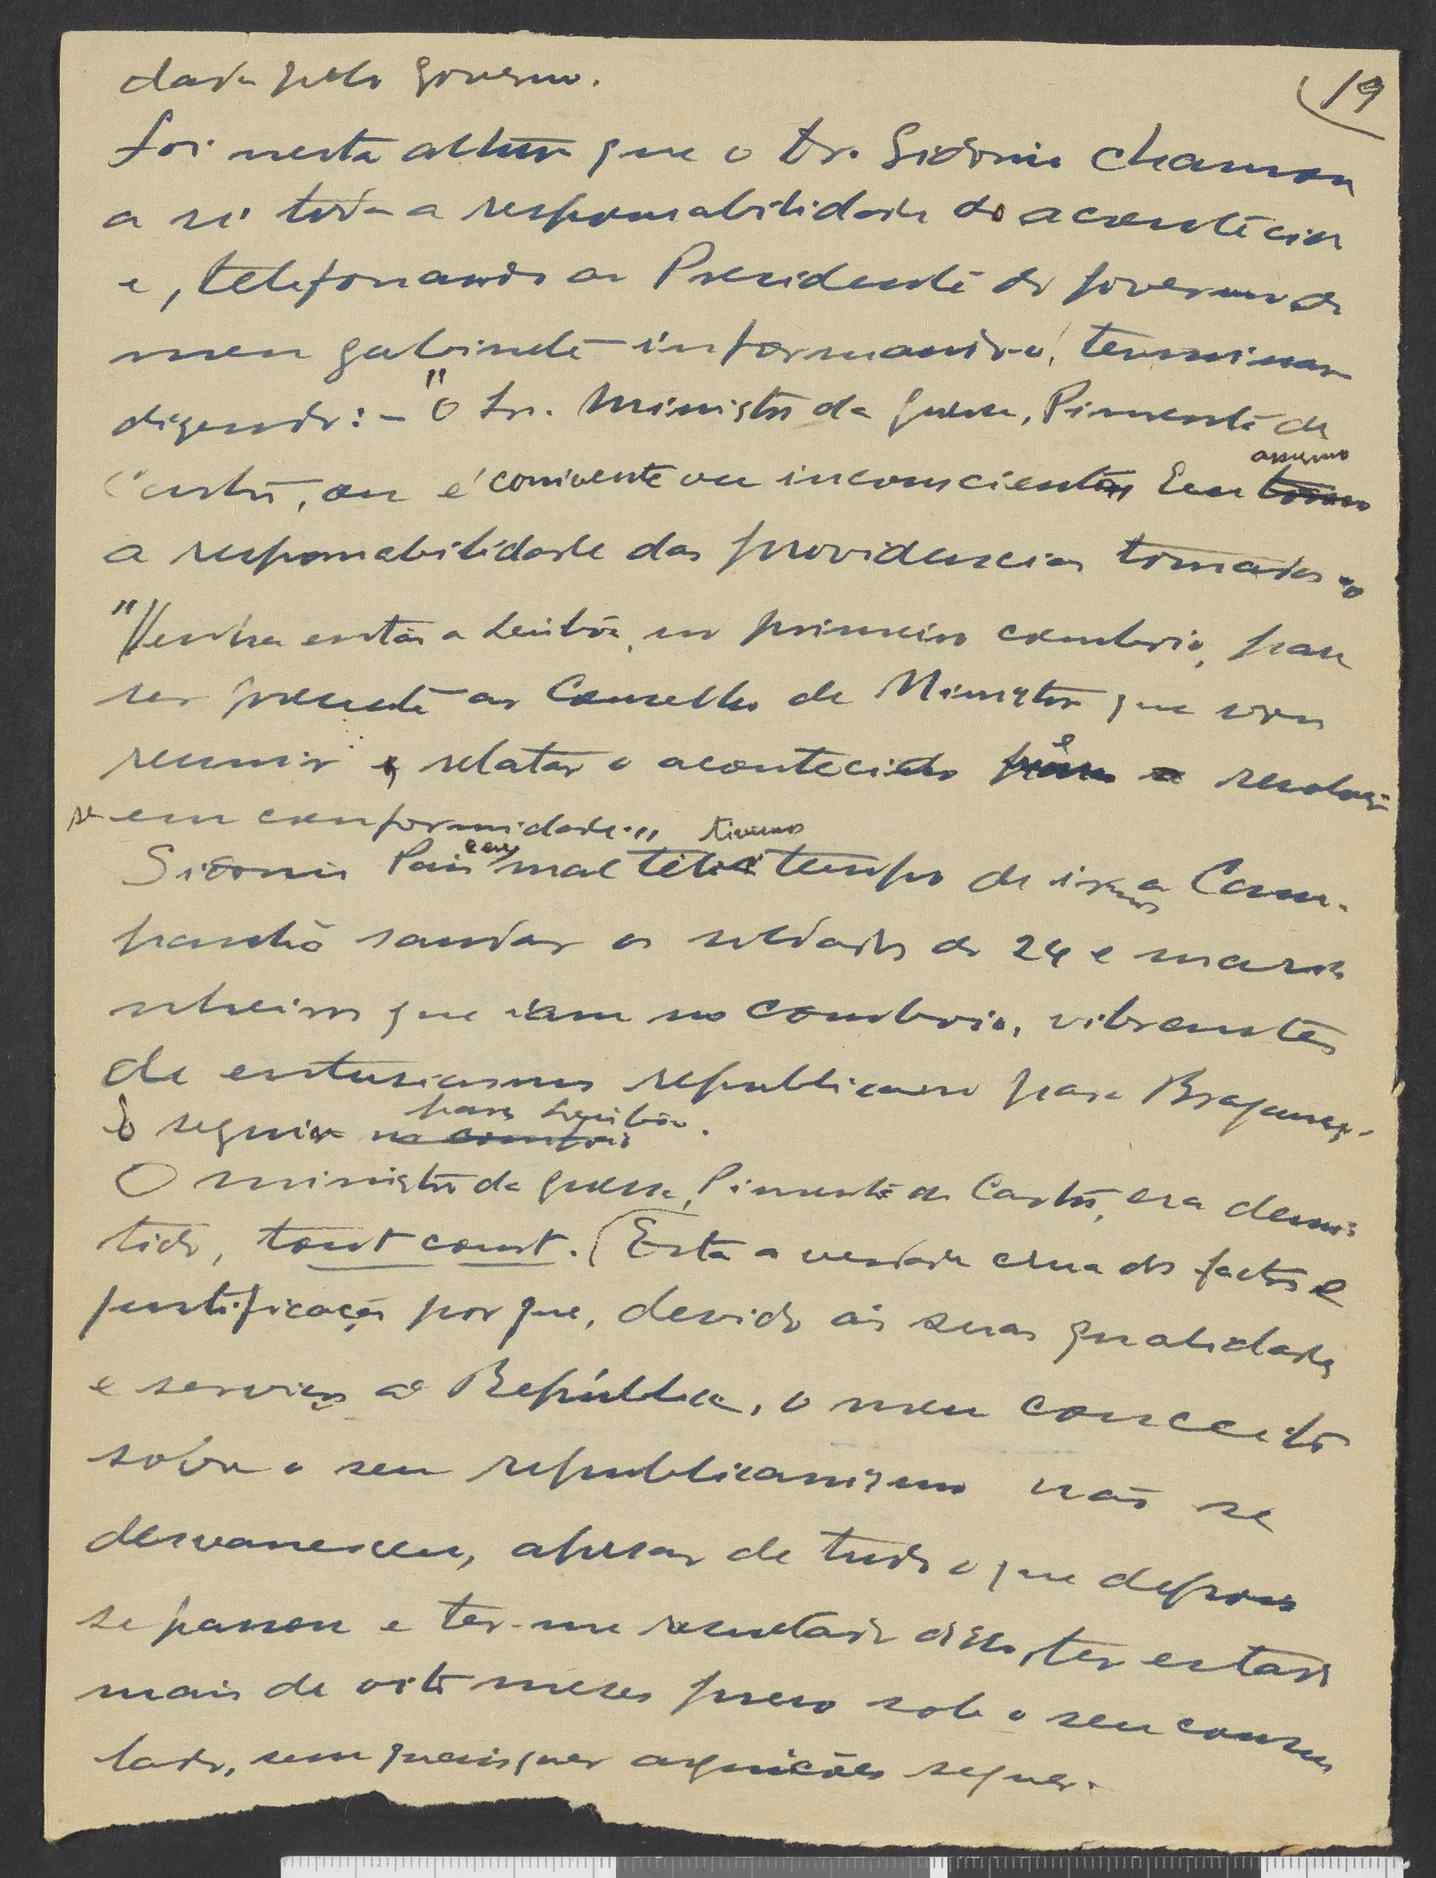 19
dada pelo governo.
Foi nesta altura que o Dr. Sidonio chamou
a si toda a responsabilidade do acontecido
e, telefonando ao Presidente do governo do
meu gabinete informando-o, terminou
dizendo: - "O Sr. Ministro da guerra, Pimenta de
Castro, ou é conivente ou inconsciente. Eu tomo assumo
a responsabilidade das providencias tomadas."
"Venha então a Lisbôa, no primeiro comboio, para
ser presente ao Conselho de Ministros que vou
reunir e relatar o acontecido para e resolver-
se em conformidade."
Sidonio Pais e eu mal tivemos tempo de irmos a Cam-
panhã saudar os soldados de 24 e mari-
nheiros que iam no comboio, vibrantes
de entusiasmo republicano para Bragança.
e seguir no comboio para Lisbôa.
O ministro da guerra, Pimenta de Castro, era demi-
tido, tout court. (Esta a verdade crua dos factos e
justificação porque, devido ás suas qualidades
e serviços á República, o meu conceito
sobre o seu republicanismo não se
desvaneceu, apesar de tudo o que depois
se passou e ter-me resultado disso, ter estado
mais de oito meses preso sob o seu consu-
lado, sem quaisquer arguições sequer.